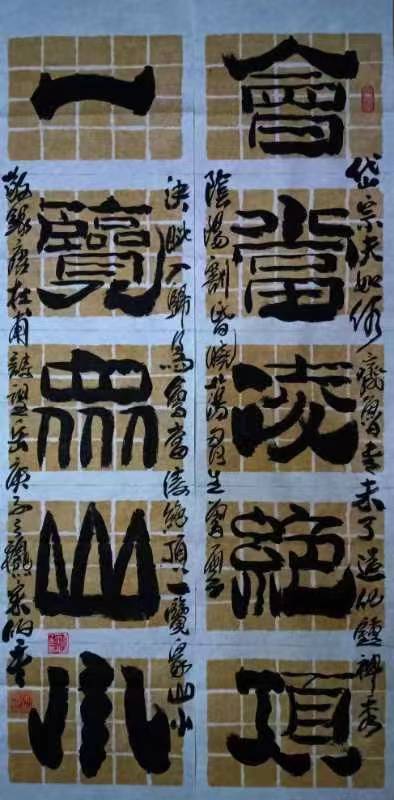 岱宗夫如何齊魯青未了造化鍾神秀
會當凌絕頂
陰陽割昏曉蕩胸生層雲
決眥入歸鳥會當凌絕頂一覽眾山小
一覽眾山小
敬錄唐杜甫詩望岳庚子之